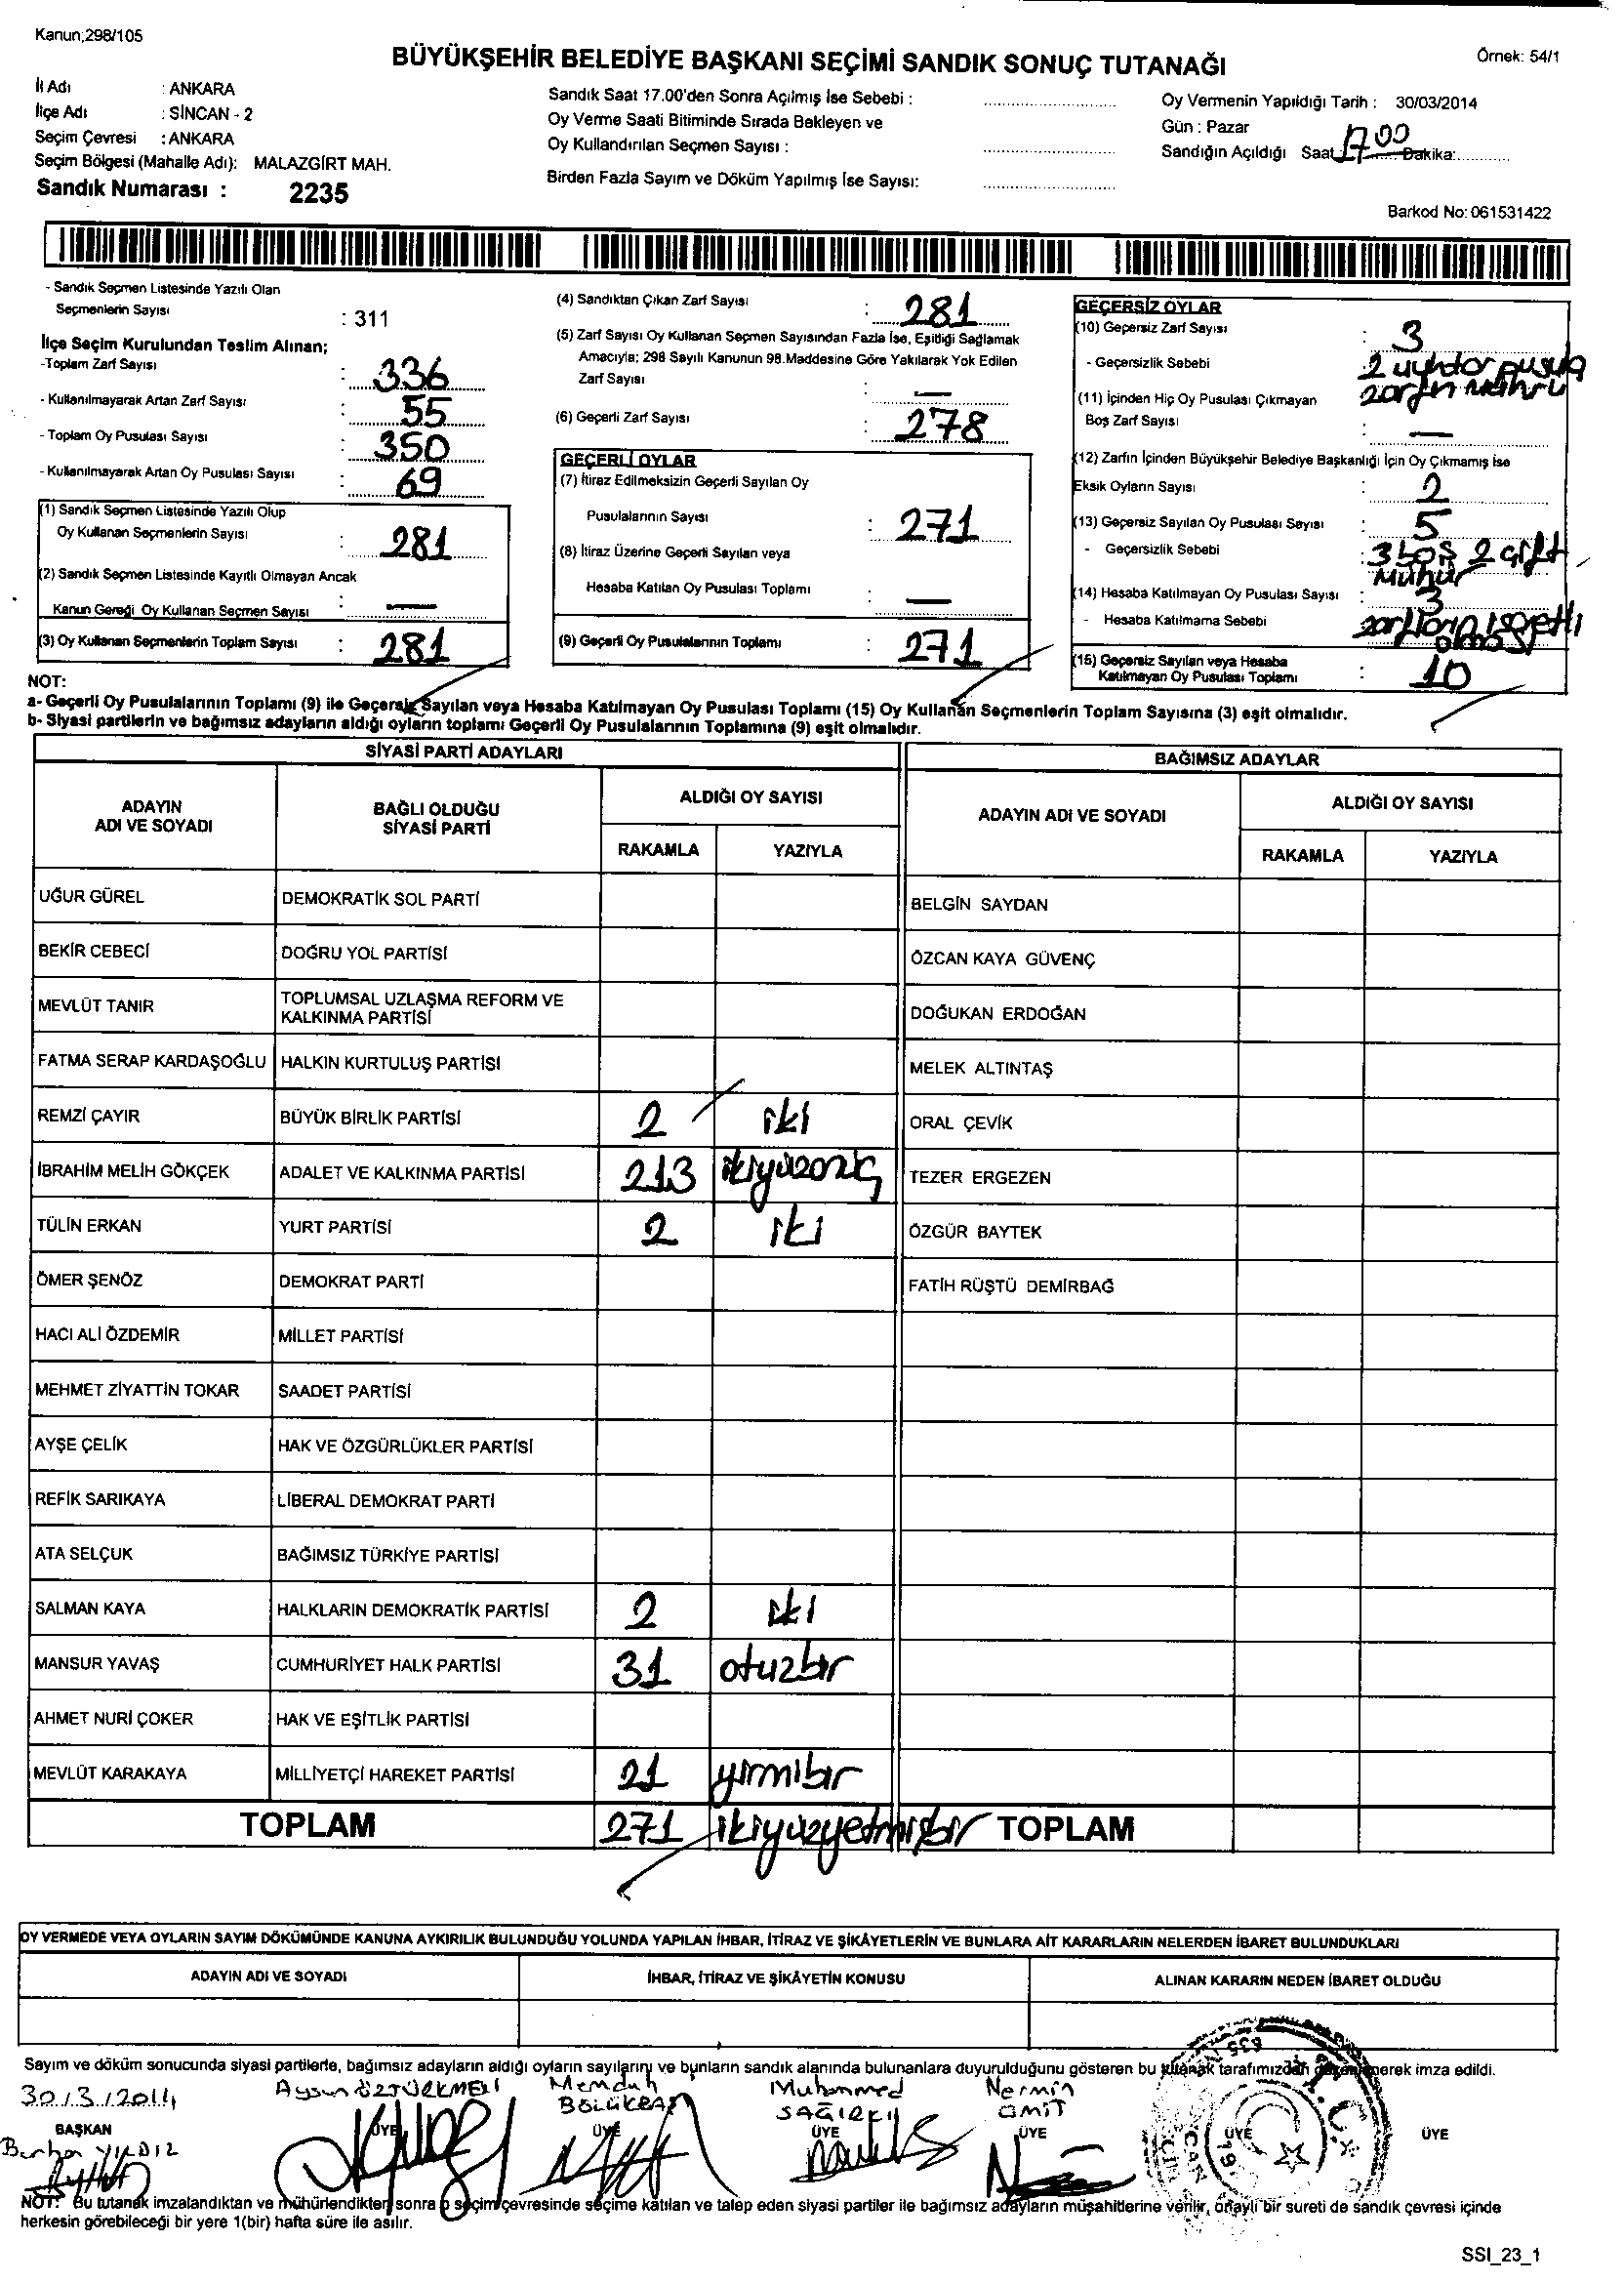 Kanun;298/105
BÜYÜKŞEHİR BELEDİYE BAŞKANI SEÇİMİ SANDIK SONUÇ TUTANAĞI
Örnek: 54/1
İl Adı : ANKARA
İlçe Adı : SİNCAN - 2
Seçim Çevresi : ANKARA
Seçim Bölgesi (Mahalle Adı): MALAZGİRT MAH.
Sandık Numarası : 2235
Sandık Saat 17.00'den Sonra Açılmış İse Sebebi :
Oy Verme Saati Bitiminde Sırada Bekleyen ve
Oy Kullandırılan Seçmen Sayısı :
Birden Fazla Sayım ve Döküm Yapılmış İse Sayısı:
Oy Vermenin Yapıldığı Tarih : 30/03/2014
Gün : Pazar
Sandığın Açıldığı Saat 17 00 Dakika:
Barkod No: 061531422
- Sandık Seçmen Listesinde Yazılı Olan
Seçmenlerin Sayısı : 311
İlçe Seçim Kurulundan Teslim Alınan;
-Toplam Zarf Sayısı : 336
- Kullanılmayarak Artan Zarf Sayısı : 55
- Toplam Oy Pusulası Sayısı : 350
- Kullanılmayarak Artan Oy Pusulası Sayısı : 69
(1) Sandık Seçmen Listesinde Yazılı Olup
Oy Kullanan Seçmenlerin Sayısı : 281
(2) Sandık Seçmen Listesinde Kayıtlı Olmayan Ancak
Kanun Gereği Oy Kullanan Seçmen Sayısı : —
(3) Oy Kullanan Seçmenlerin Toplam Sayısı : 281
(4) Sandıktan Çıkan Zarf Sayısı : 281
(5) Zarf Sayısı Oy Kullanan Seçmen Sayısından Fazla İse, Eşitliği Sağlamak
Amacıyla; 298 Sayılı Kanunun 98.Maddesine Göre Yakılarak Yok Edilen
Zarf Sayısı : —
(6) Geçerli Zarf Sayısı : 278
GEÇERLİ OYLAR
(7) İtiraz Edilmeksizin Geçerli Sayılan Oy
Pusulalarının Sayısı : 271
(8) İtiraz Üzerine Geçerli Sayılan veya
Hesaba Katılan Oy Pusulası Toplamı : —
(9) Geçerli Oy Pusulalarının Toplamı : 271
GEÇERSİZ OYLAR
(10) Geçersiz Zarf Sayısı : 3
- Geçersizlik Sebebi
(11) İçinden Hiç Oy Pusulası Çıkmayan
Boş Zarf Sayısı : —
(12) Zarfın İçinden Büyükşehir Belediye Başkanlığı İçin Oy Çıkmamış İse
Eksik Oyların Sayısı : 2
(13) Geçersiz Sayılan Oy Pusulası Sayısı : 5
- Geçersizlik Sebebi : 3 boş 2 çift
Mühür
(14) Hesaba Katılmayan Oy Pusulası Sayısı : 3
- Hesaba Katılmama Sebebi
(15) Geçersiz Sayılan veya Hesaba
Katılmayan Oy Pusulası Toplamı : 10
NOT:
a- Geçerli Oy Pusulalarının Toplamı (9) ile Geçersiz Sayılan veya Hesaba Katılmayan Oy Pusulası Toplamı (15) Oy Kullanan Seçmenlerin Toplam Sayısına (3) eşit olmalıdır.
b- Siyasi partilerin ve bağımsız adayların aldığı oyların toplamı Geçerli Oy Pusulalarının Toplamına (9) eşit olmalıdır.
SİYASİ PARTİ ADAYLARI
ADAYIN ADI VE SOYADI BAĞLI OLDUĞU SİYASİ PARTİ ALDIĞI OY SAYISI
RAKAMLA YAZIYLA
UĞUR GÜREL DEMOKRATİK SOL PARTİ
BEKİR CEBECİ DOĞRU YOL PARTİSİ
MEVLÜT TANIR TOPLUMSAL UZLAŞMA REFORM VE KALKINMA PARTİSİ
FATMA SERAP KARDAŞOĞLU HALKIN KURTULUŞ PARTİSİ
REMZİ ÇAYIR BÜYÜK BİRLİK PARTİSİ 2 iki
İBRAHİM MELİH GÖKÇEK ADALET VE KALKINMA PARTİSİ 213 ikiyüzonüç
TÜLİN ERKAN YURT PARTİSİ 2 iki
ÖMER ŞENÖZ DEMOKRAT PARTİ
HACI ALİ ÖZDEMİR MİLLET PARTİSİ
MEHMET ZİYATTİN TOKAR SAADET PARTİSİ
AYŞE ÇELİK HAK VE ÖZGÜRLÜKLER PARTİSİ
REFİK SARIKAYA LİBERAL DEMOKRAT PARTİ
ATA SELÇUK BAĞIMSIZ TÜRKİYE PARTİSİ
SALMAN KAYA HALKLARIN DEMOKRATİK PARTİSİ 2 iki
MANSUR YAVAŞ CUMHURİYET HALK PARTİSİ 31 otuzbir
AHMET NURİ ÇOKER HAK VE EŞİTLİK PARTİSİ
MEVLÜT KARAKAYA MİLLİYETÇİ HAREKET PARTİSİ 21 yirmibir
TOPLAM 271 ikiyüzyetmişbir
BAĞIMSIZ ADAYLAR
ADAYIN ADI VE SOYADI ALDIĞI OY SAYISI
RAKAMLA YAZIYLA
BELGİN SAYDAN
ÖZCAN KAYA GÜVENÇ
DOĞUKAN ERDOĞAN
MELEK ALTINTAŞ
ORAL ÇEVİK
TEZER ERGEZEN
ÖZGÜR BAYTEK
FATİH RÜŞTÜ DEMİRBAĞ
TOPLAM
OY VERMEDE VEYA OYLARIN SAYIM DÖKÜMÜNDE KANUNA AYKIRILIK BULUNDUĞU YOLUNDA YAPILAN İHBAR, İTİRAZ VE ŞİKÂYETLERİN VE BUNLARA AİT KARARLARIN NELERDEN İBARET BULUNDUKLARI
ADAYIN ADI VE SOYADI İHBAR, İTİRAZ VE ŞİKÂYETİN KONUSU ALINAN KARARIN NEDEN İBARET OLDUĞU
Sayım ve döküm sonucunda siyasi partilerle, bağımsız adayların aldığı oyların sayılarını ve bunların sandık alanında bulunanlara duyurulduğunu gösteren bu tutanak tarafımızdan düzenlenerek imza edildi.
30/3/2014 Aysun ÖZTÜRKMEN Memduh Muhammed Nermin
BAŞKAN ÜYE ÜYE ÜYE ÜYE ÜYE ÜYE
YILDIZ ÜMİT
NOT: Bu tutanak imzalandıktan ve mühürlendikten sonra o seçim çevresinde seçime katılan ve talep eden siyasi partiler ile bağımsız adayların müşahitlerine verilir, onaylı bir sureti de sandık çevresi içinde
herkesin görebileceği bir yere 1(bir) hafta süre ile asılır.
SSI_23_1